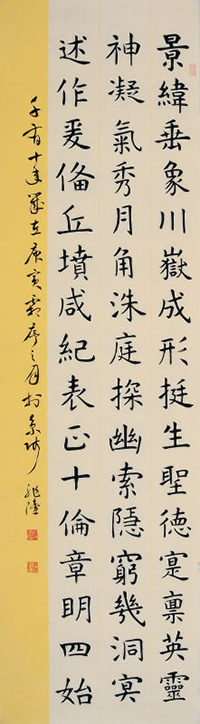 景緯垂象川嶽成形挺生聖德寔禀英靈
神凝氣秀月角洙庭探幽索隱窮幾洞冥
述作爰俻丘墳咸紀表正十倫章明四始
千有十年歲在庚寅霜序之月於京師